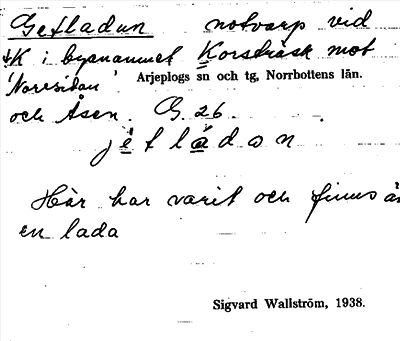 Getladun notvarp vid
+K i bysnamnet Korsträsk mot
'Norrsidan'. Arjeplogs sn och tg, Norrbottens län.
och Åsen. G. 26.
jetládon
Här har varit och finns än
en lada
Sigvard Wallström, 1938.